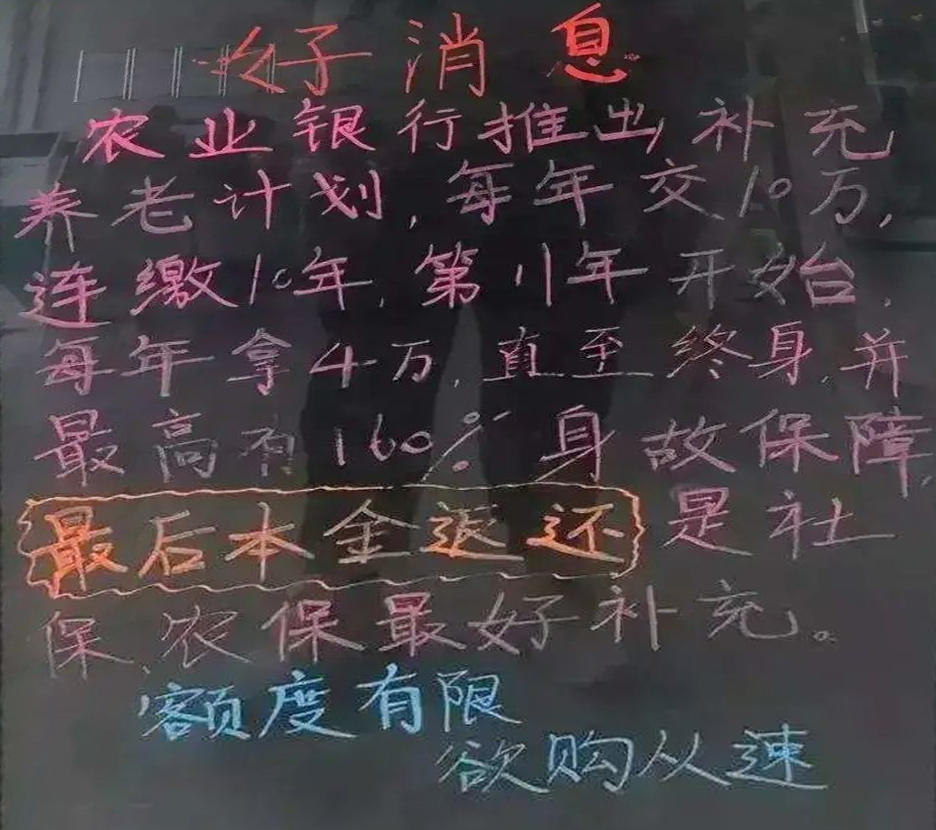 好消息
农业银行推出补充
养老计划,每年交10万,
连缴10年,第11年开始,
每年拿4万,直至终身,并
最高有160%身故保障,
最后本金退还是社
保、农保最好补充。
额度有限
欲购从速